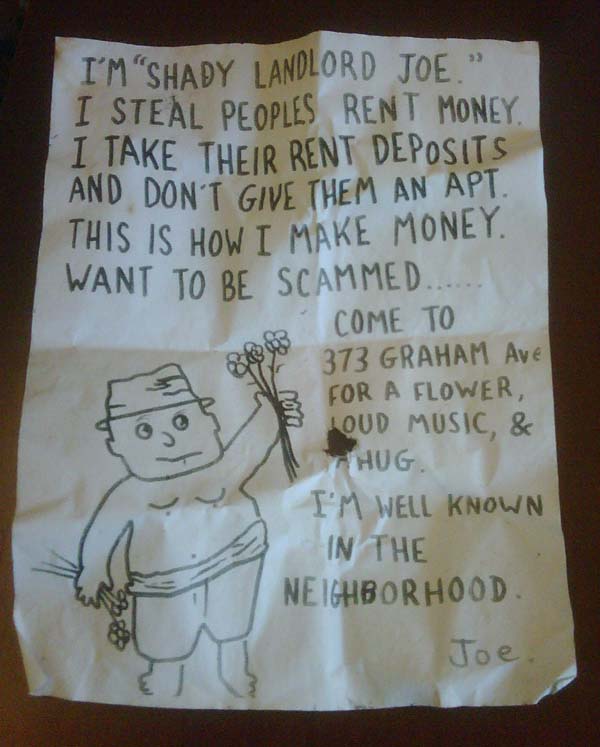 I'M "SHADY LANDLORD JOE."
I STEAL PEOPLES RENT MONEY.
I TAKE THEIR RENT DEPOSITS
AND DON'T GIVE THEM AN APT.
THIS IS HOW I MAKE MONEY.
WANT TO BE SCAMMED......
COME TO
373 GRAHAM Ave
FOR A FLOWER,
LOUD MUSIC, &
A HUG.
I'M WELL KNOWN
IN THE
NEIGHBORHOOD.
Joe.